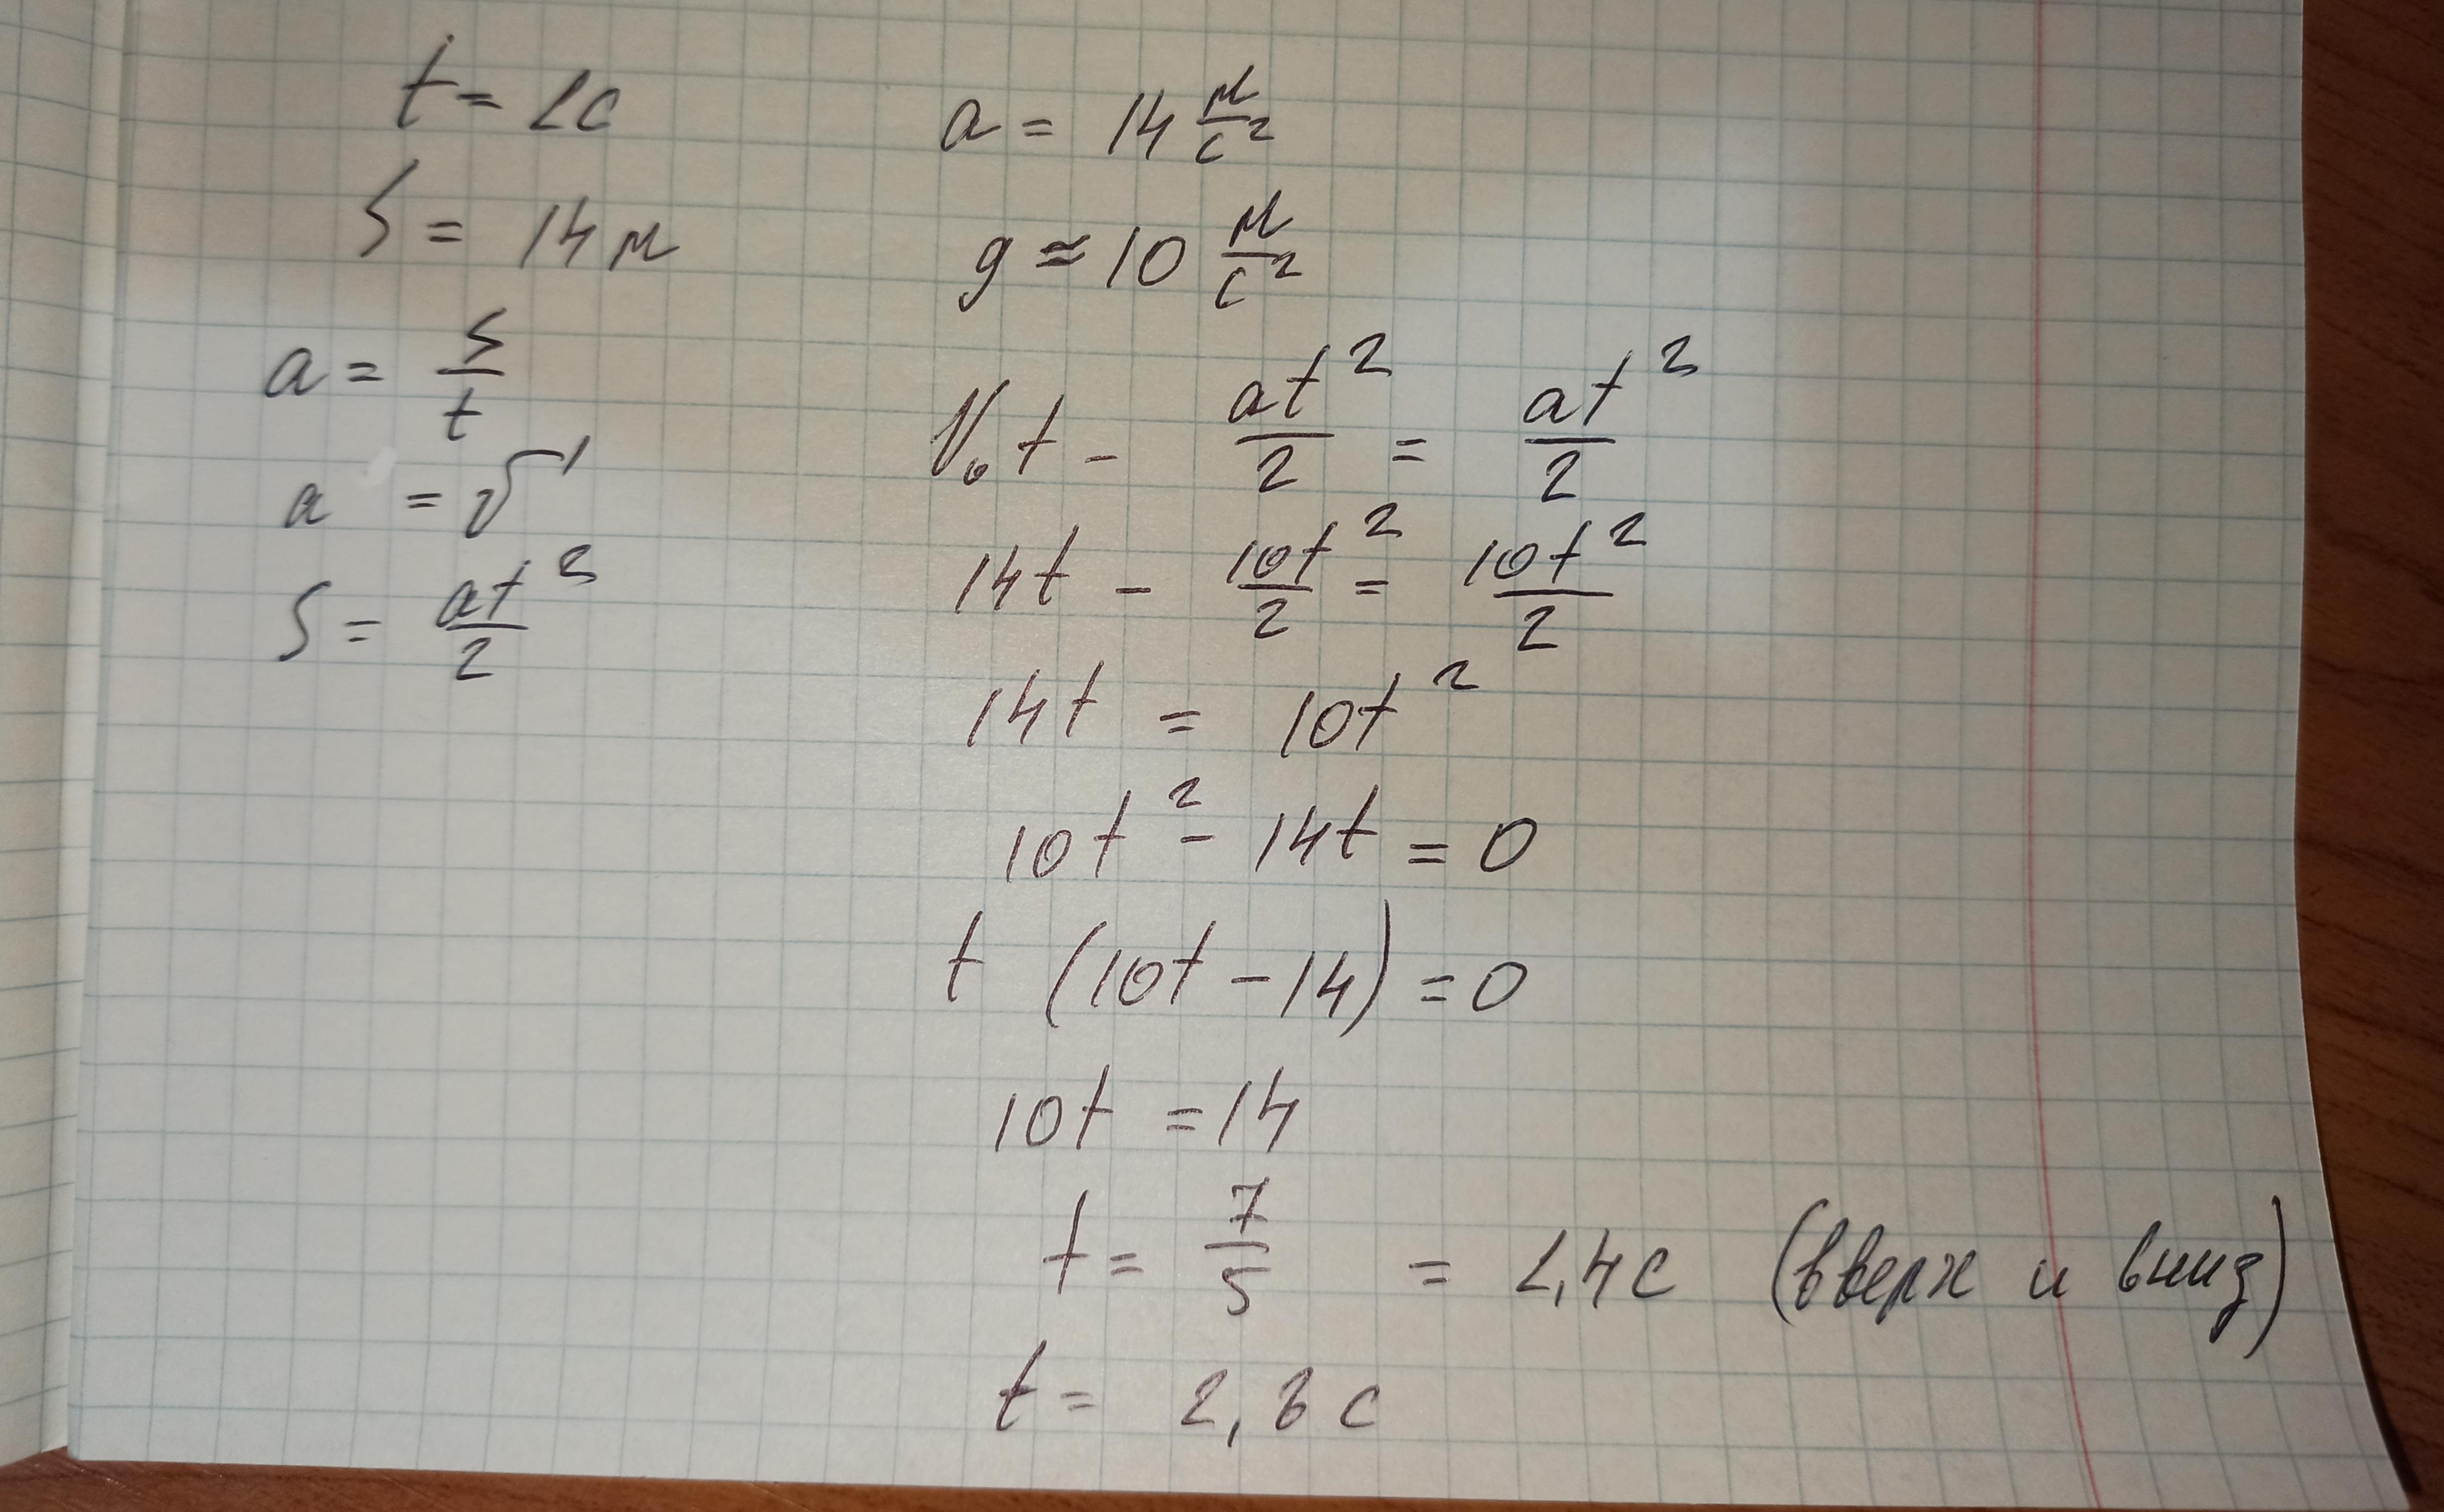 t = 1c
S = 14м
a = S/t
a = v'
S = at²/2
a = 14 м/с²
g ≈ 10 м/с²
V₀t - at²/2 = at²/2
14t - 10t²/2 = 10t²/2
14t = 10t²
10t² - 14t = 0
t (10t - 14) = 0
10t = 14
t = 7/5 = 1,4c (вверх и вниз)
t = 2,8c